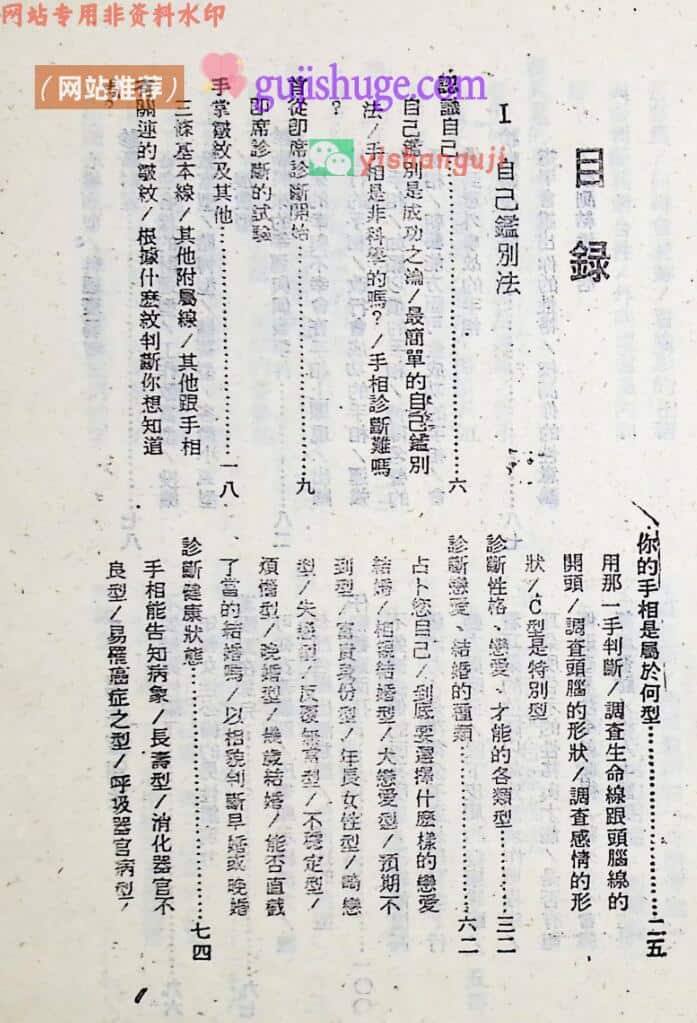 网站专用非资料水印
(网站推荐)
gujishuge.com
yishanguji
目錄
I 自己鑑別法
認識自己……六
自己鑑別是成功之論/最簡單的自己鑑別
法/手相是非科學的嗎?/手相診斷難嗎
?
首從即席診斷開始……九
即席診斷的試驗
手掌皺紋及其他……一八
三條基本線/其他附屬線/其他跟手相
有關連的皺紋/根據什麽紋判斷你想知道
你的手相是屬於何型……二五
用那一手判斷/調查生命線跟頭腦線的
開頭/調查頭腦的形狀/調查感情的形
狀/C型是特別型
診斷性格、戀愛、才能的各類型……三二
診斷戀愛、結婚的種類……六二
占卜您自己/到底要選擇什麽樣的戀愛
結婚/相親結婚型/大戀愛型/預期不
到型/富貴身份型/年長女性型/畸戀
型/失戀型/反覆無常型/不確定型/
煩惱型/晚婚型/幾歲結婚/能否直截
了當的結婚嗎/以相貌判斷早婚或晚婚
診斷健康狀態……七四
手相能告知病象/長壽型/消化器官不
良型/易罹癌症之型/呼吸器官病型/
1